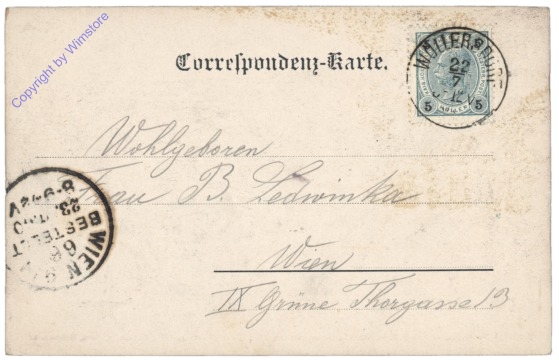 Copyright by Wimstore
Correspondenz-Karte.
WÖLLERSDORF
22
7
12
5 5
HELLER
Wohlgeboren
Frau B. Ledwinka
Wien
IX Grüne Thorgasse 13
WIEN 9/1
68
BESTELLT
23.
8-9½V